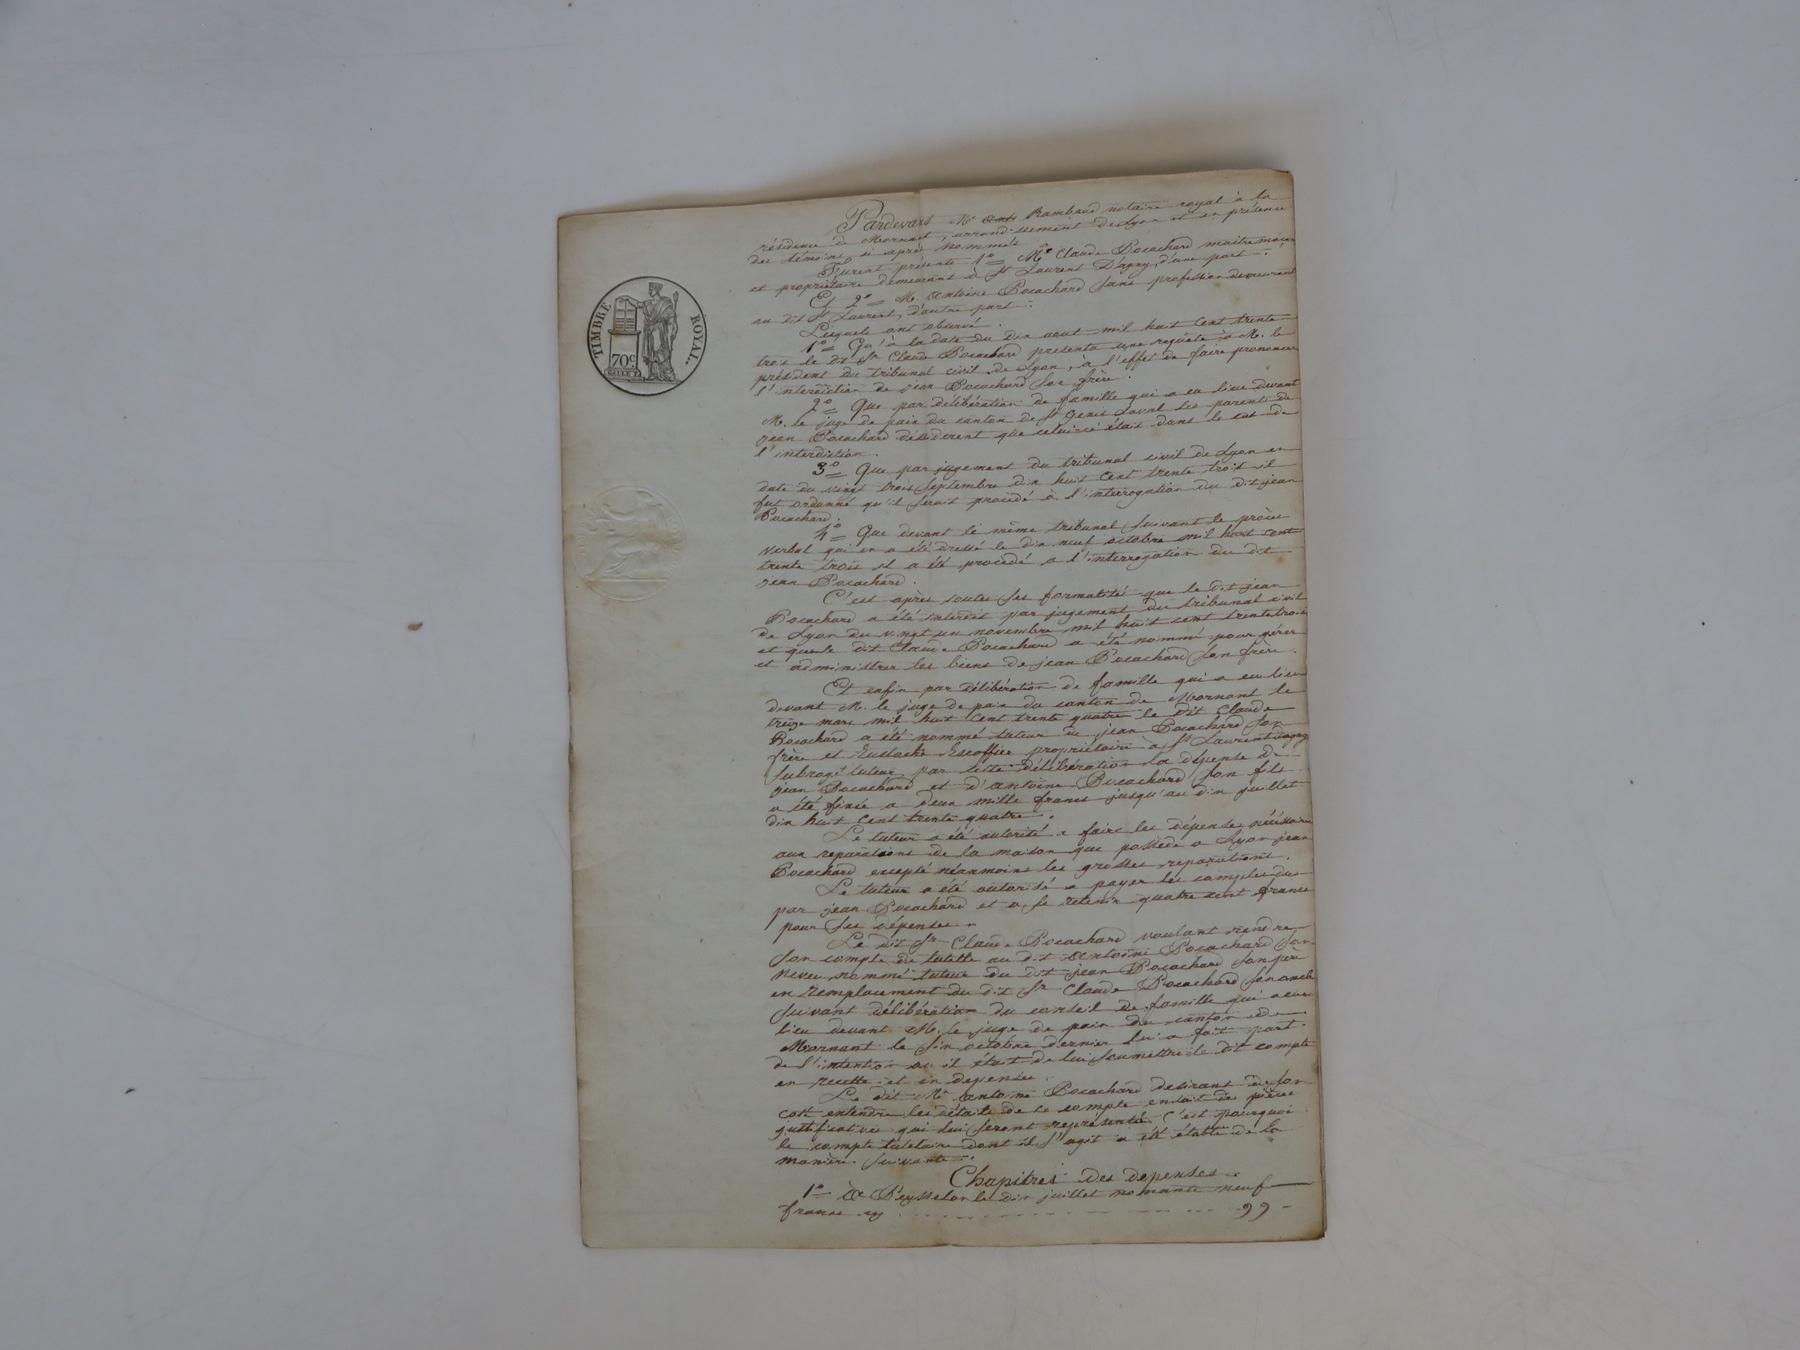 TIMBRE ROYAL.
70c
Pardevant Me Rambaud notaire royal à la
résidence de Mornant arrondissement de Lyon et en présence
des témoins ci après nommés
Furent présents 1o Me Claude Bocachard maitre maçon
et propriétaire demeurant à St Laurent D'agny, d'une part.
Et 2o M. Antoine Bocachard sans profession demeurant
au dit St Laurent, d'autre part.
Lesquels ont observé.
1o Qu'à la date du dix aout mil huit Cent trente
trois le dit Sr Claude Bocachard présenta une requête à M. le
président du tribunal civil de Lyon, à l'effet de faire prononcer
l'interdiction de jean Bocachard son frère.
2o Que par délibération de famille qui a eu lieu devant
M. le juge de paix du canton de St Genis Laval les parents de
jean Bocachard déciderent que celui-ci était dans le cas de
l'interdiction.
3o Que par jugement du tribunal civil de Lyon en
date du vingt trois Septembre dix huit Cent trente trois il
fut ordonné qu'il serait procédé à l'interrogation du dit jean
Bocachard.
4o Que devant le même tribunal suivant le procès
verbal qui en a été dressé le dix neuf octobre mil huit cent
trente trois il a été procédé a l'interrogation du dit
jean Bocachard.
C'est après toutes ses formalités que le dit jean
Bocachard a été interdit par jugement du tribunal civil
de Lyon du vingt un novembre mil huit cent trente trois
et que le dit Claude Bocachard a été nommé pour gérer
et administrer les biens de jean Bocachard son frère.
Et enfin par délibération de famille qui a eu lieu
devant M. le juge de paix du canton de Mornant le
treize mars mil huit cent trente quatre le dit Claude
Bocachard a été nommé tuteur de jean Bocachard son
frère et Eustache Escoffier propriétaire à St Laurent dagny
subrogé tuteur, par cette délibération la dépense de
jean Bocachard et d'antoine Bocachard son fils
a été fixée a deux mille francs jusqu'au dix juillet
dix huit cent trente quatre.
Le tuteur a été autorisé a faire les dépenses nécessaires
aux reparations de la maison que possède a Lyon jean
Bocachard excepté néanmoins les grosses reparations.
Le tuteur a été autorisé a payer les comptes dus
par jean Bocachard et a se retenir quatre cent francs
pour ses dépenses.
Le dit Sr Claude Bocachard voulant rendre
son compte de tutelle au dit Antoine Bocachard son
Neveu, nommé tuteur du dit jean Bocachard son père
en remplacement du dit Sr Claude Bocachard son oncle
suivant délibération du conseil de famille qui a eu
lieu devant M. le juge de paix du canton de
Mornant le six octobre dernier lui a fait part
de l'intention où il était de lui soumettre le dit compte
en recette et en depenses.
Le dit Me Antoine Bocachard desirant de son
coté entendre les détails de ce compte ensuit de pièces
justificatives qui lui seront représentés. C'est pourquoi
le compte tutelaire dont il s'agit a été établi de la
manière suivante.
Chapitres des depenses
1o à Peysselon le dix juillet nonante neuf
francs cy 99